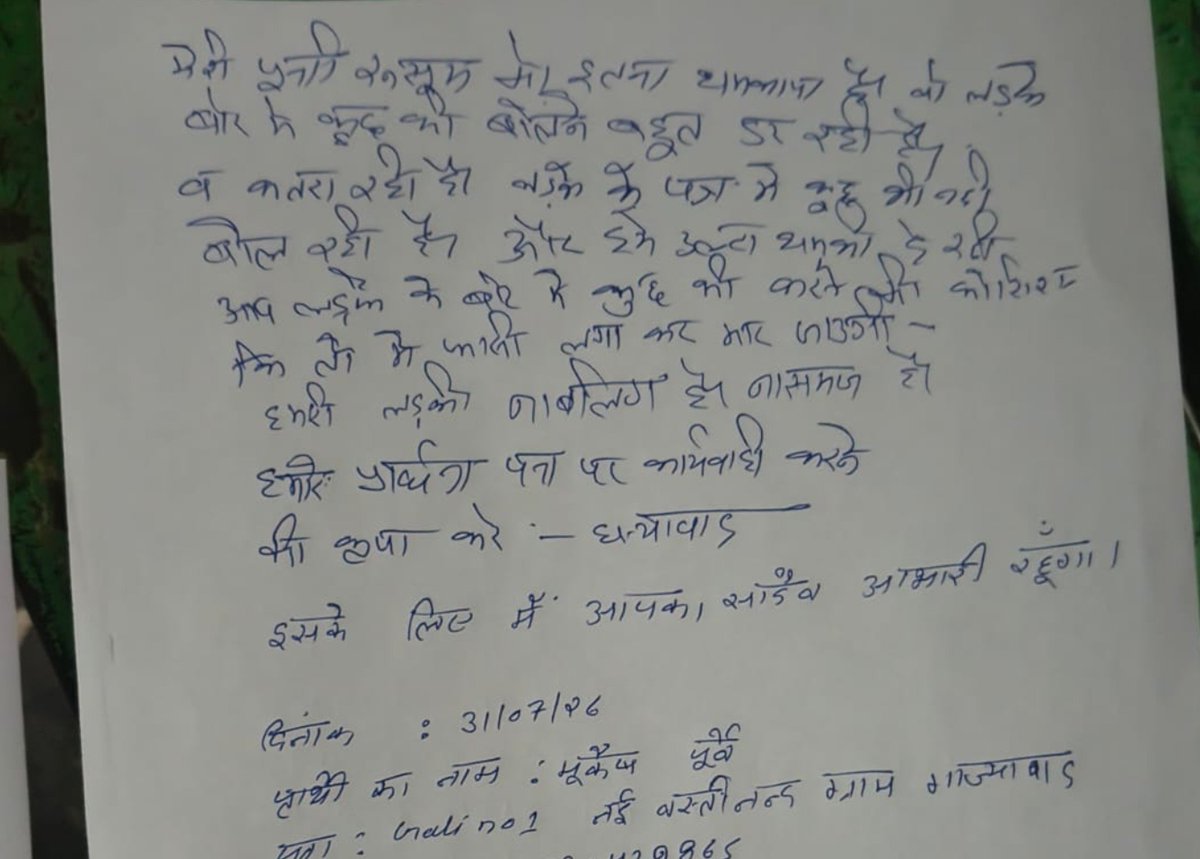 मेरी पुत्री को इतना धमकाया है। वो लड़के
बारे मे कुछ की बोलने बहूत डर रही है
व कतरा रही है। लड़के के पत्र मे कुछ भी नही
बोल रही है। और हमे उल्टा धमकी दे रही
आप लड़के के बारे मे कुछ की करने की कोशिश
कि तो मे फासी लगा कर मार जाउगी –
हमारी लड़की नाबालिग है। नासमज है।
हमारे प्रार्थना पत्र पर कार्यवाही करने
की कृपा करे :– धन्यावाद
इसके लिए मैं आपका सदैव आभारी रहूँगा।
दिनांक : 31/07/26
प्रार्थी का नाम : मूकेष
पता : Gali no 1 नई बस्ती नन्द ग्राम गाज्यावाद